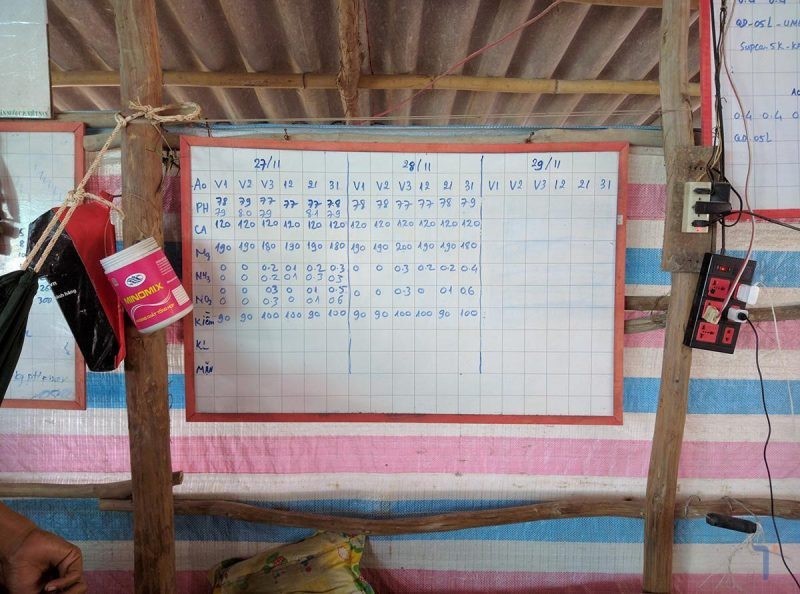 27/11 28/11 29/11
Ao V1 V2 V3 12 21 31 V1 V2 V3 12 21 31 V1 V2 V3 12 21 31
PH 78 79 77 77 77 78 78 78 77 77 78 79
79 80 79 81 79
CA 120 120 120 120 120 120 120 120 120 120 120 120
Mg 190 190 180 190 190 180 190 190 200 190 190 180
NH3 0 0 0.2 01 0.2 0.3 0 0 0.3 0.2 0.2 0.4
0 0 0.2 01 03 03
NO2 0 0 03 0 01 0.5 0 0 0.3 0 01 06
0 0 0.3 0 01 06
Kiềm 90 90 100 100 90 100 90 90 100 100 90 100
KL
MẶN
MINOMIX
QD-05L-
Supcan 5K-
0.4 0.4
QD-05L
300